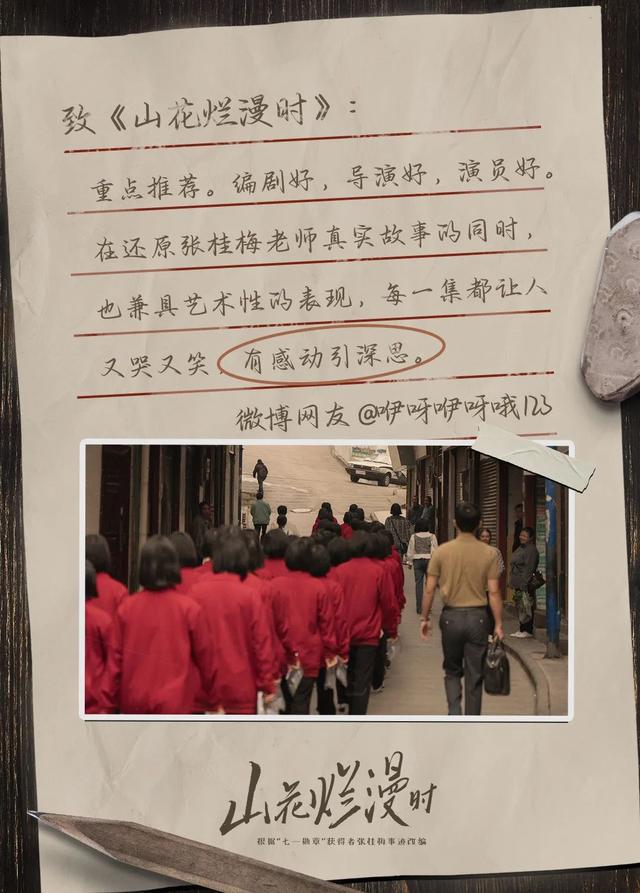 致《山花烂漫时》：
重点推荐。编剧好，导演好，演员好。
在还原张桂梅老师真实故事的同时，
也兼具艺术性的表现，每一集都让人
又哭又笑，有感动引深思。
微博网友 @咿呀咿呀哦123
山花烂漫时
根据“七一勋章”获得者张桂梅事迹改编